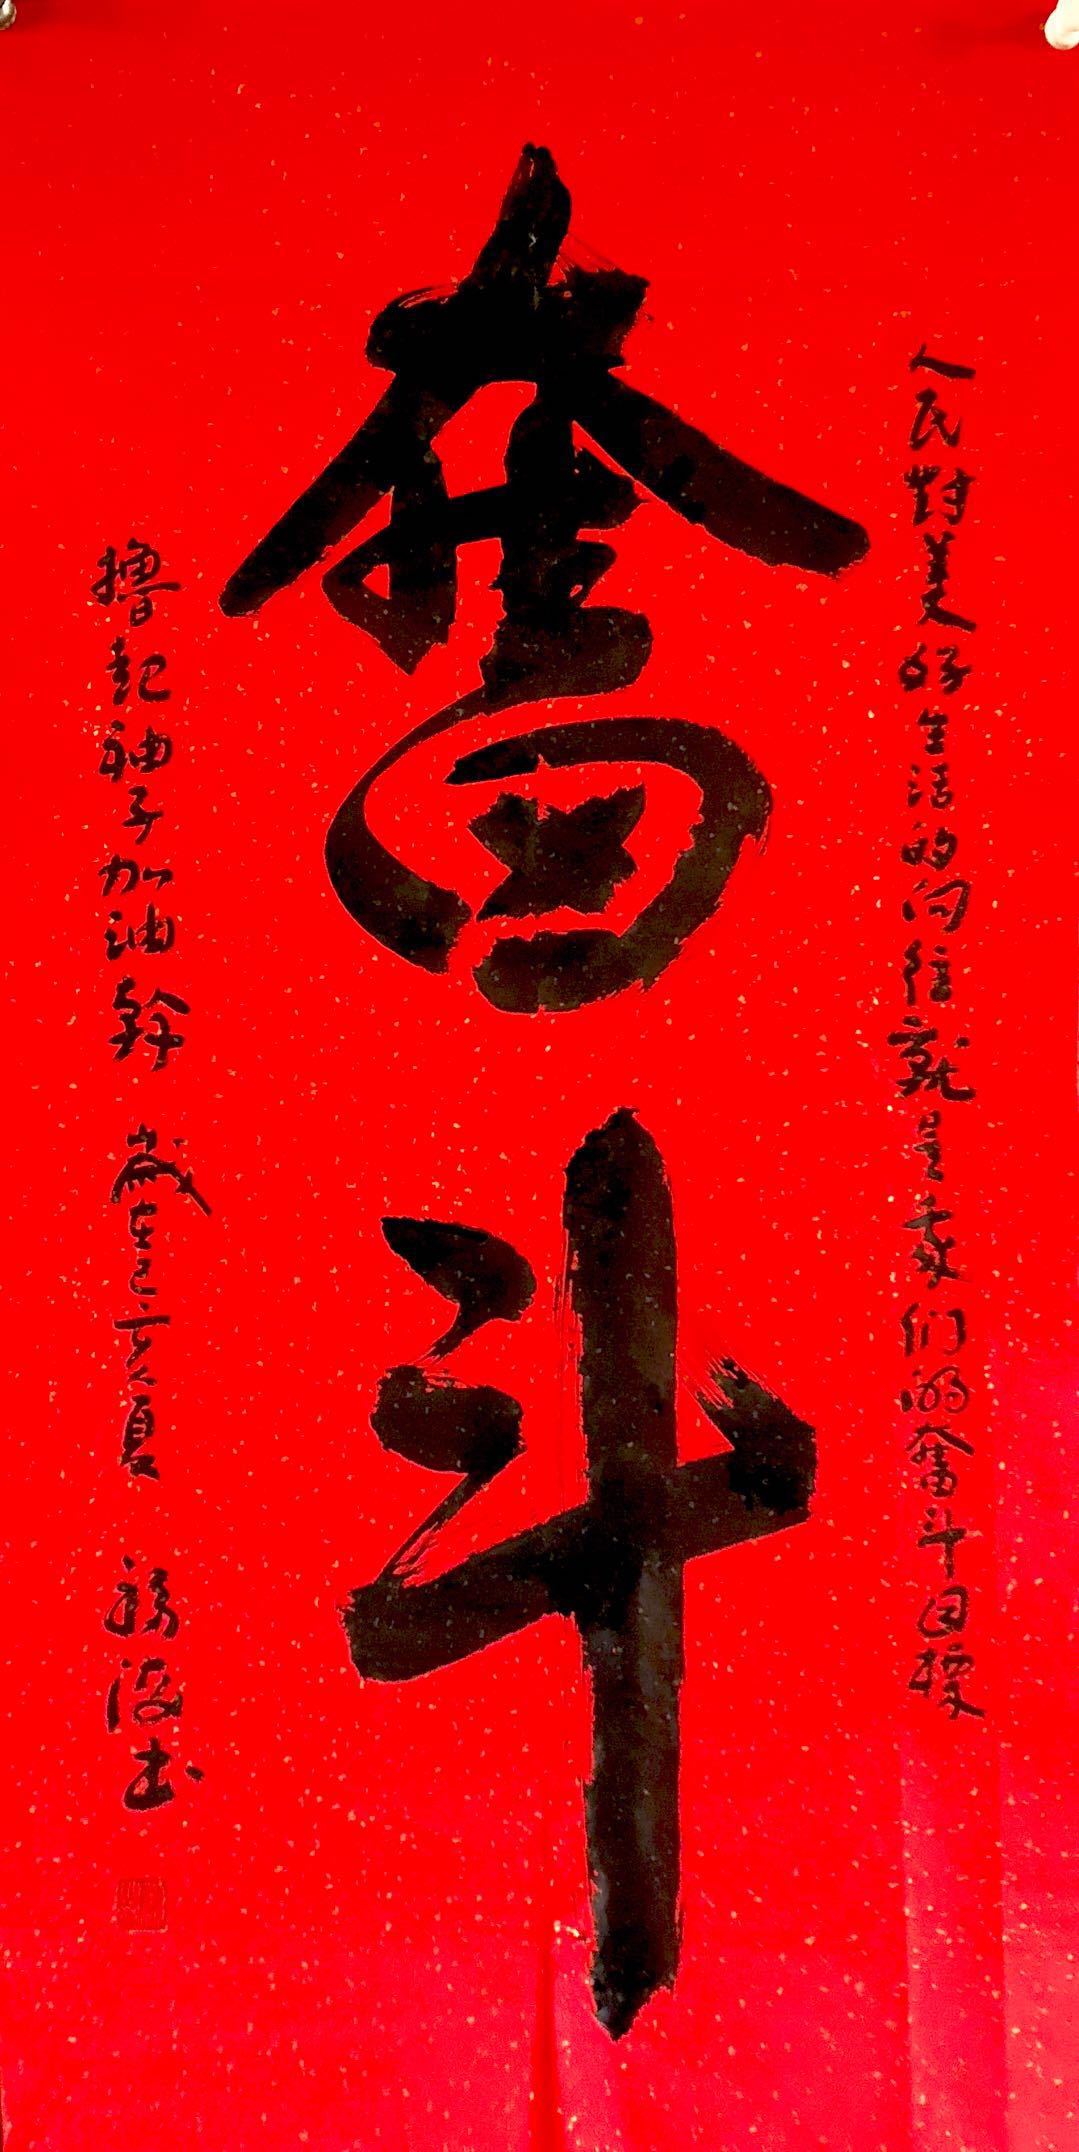 人民對美好生活的向往就是我们的奮斗目標
奮斗
撸起袖子加油幹 歲在己亥夏 福海书